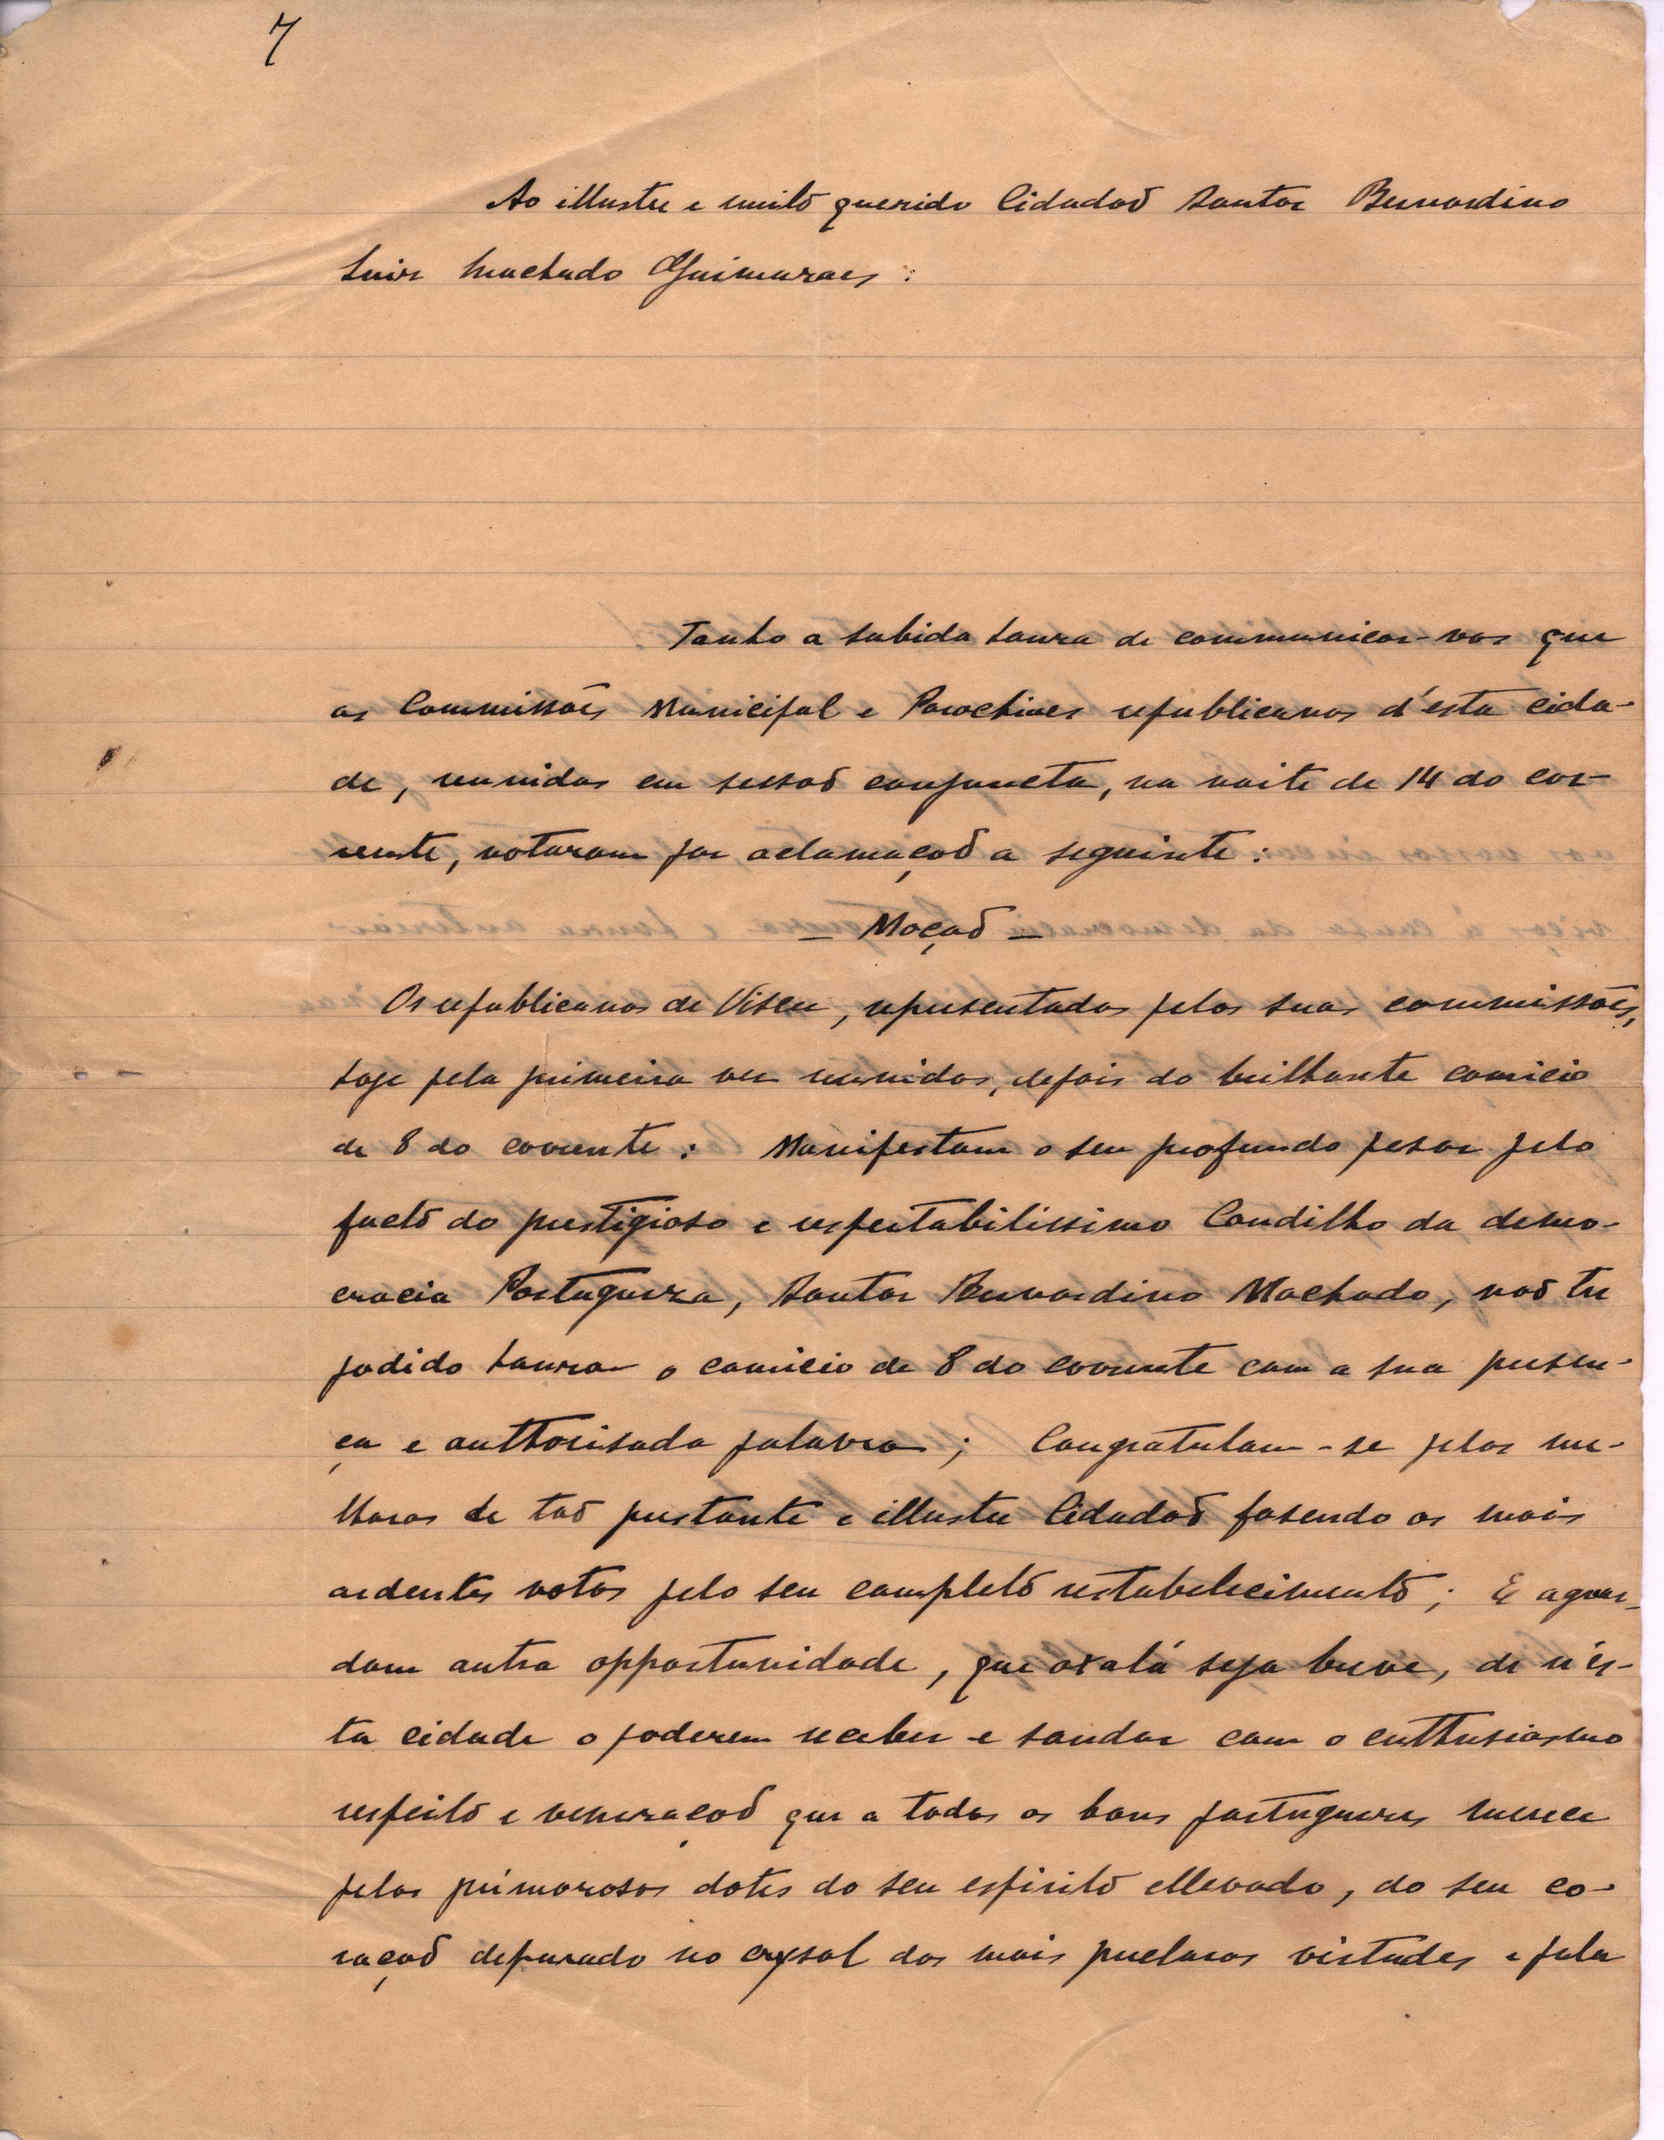 7
Ao illustre e muito querido Cidadão Doutor Bernardino
Luiz Machado Guimarães:
Tenho a subida honra de communicar-vos que
as Commissões Municipal e Parochiaes republicanas d'esta cida-
de, reunidas em sessão conjuncta, na noite de 14 do cor-
rente, votaram por aclamação a seguinte:
— Moção —
Os republicanos de Viseu, representados pelas suas commissões,
hoje pela primeira vez reunidas, depois do brilhante comicio
de 8 do corrente: Manifestam o seu profundo pesar pelo
facto do prestigioso e respeitabilissimo Caudilho da demo-
cracia Portugueza, Doutor Bernardino Machado, não ter
podido honrar o comicio de 8 do corrente com a sua presen-
ça e authorisada palavra; Congratulam-se pelas me-
lhoras de tão prestante e illustre Cidadão fasendo os mais
ardentes votos pelo seu completo restabelecimento; E aguar-
dam outra opportunidade, que oxalá seja breve, de n'es-
ta cidade o poderem receber e saudar com o enthusiasmo
respeito e veneração que a todos os bons portuguezes merece
pelos primorosos dotes do seu espirito ellevado, do seu co-
ração depurado no crysol das mais preclaras virtudes e pela